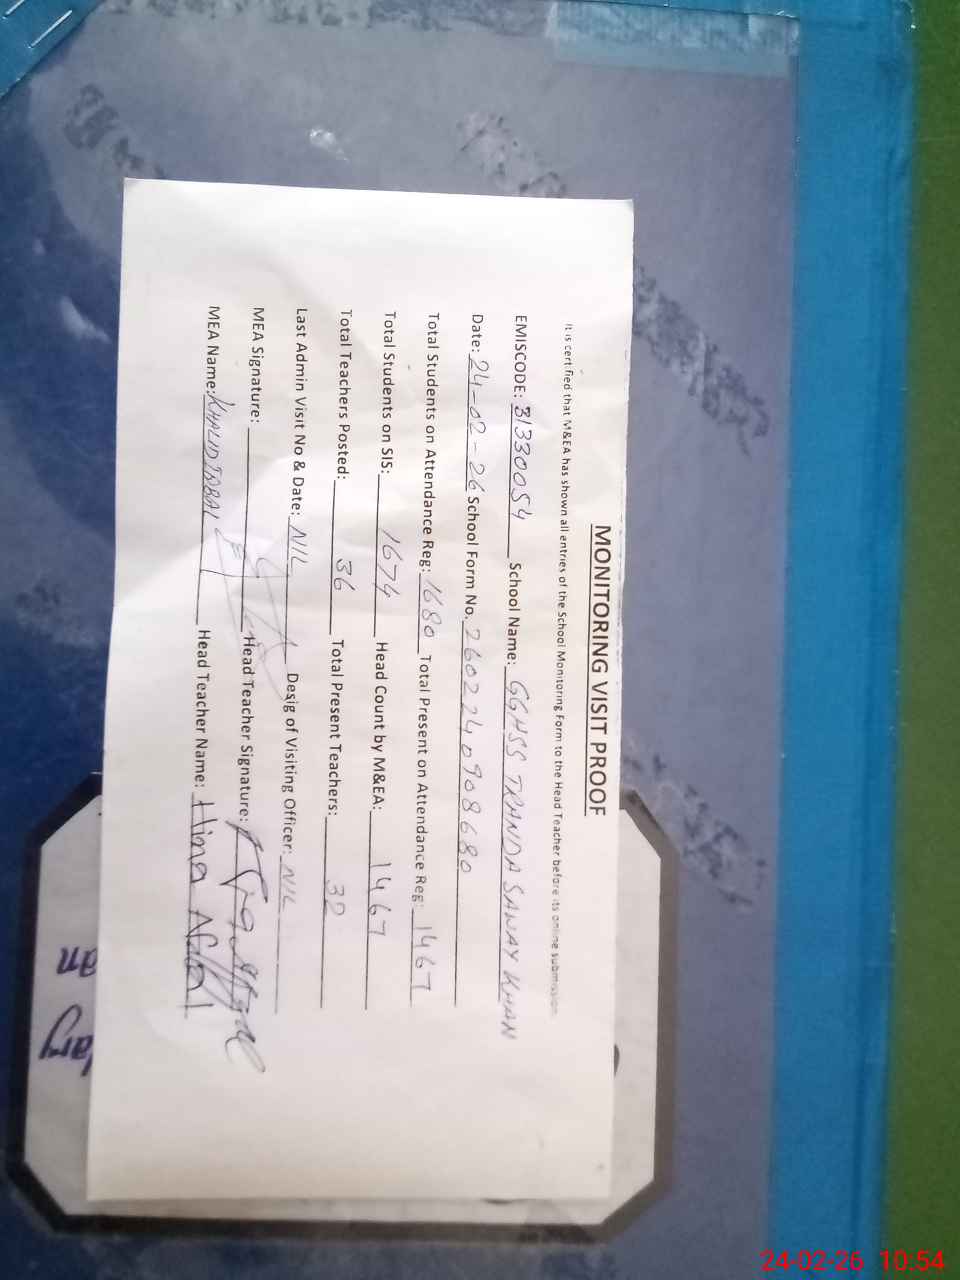 MONITORING VISIT PROOF
It is certified that M&EA has shown all entries of the School Monitoring Form to the Head Teacher before its online submission
EMISCODE: 31330054 School Name: GGHSS TRANDA SAWAY KHAN
Date: 24-02-26 School Form No. 2602240908680
Total Students on Attendance Reg: 1680 Total Present on Attendance Reg: 1467
Total Students on SIS: 1674 Head Count by M&EA: 1467
Total Teachers Posted: 36 Total Present Teachers: 32
Last Admin Visit No & Date: NIL Desig of Visiting Officer: NIL
MEA Signature: Head Teacher Signature:
MEA Name: KHALID IQBAL Head Teacher Name: Hina Afzal
an
ary
24-02-26 10:54